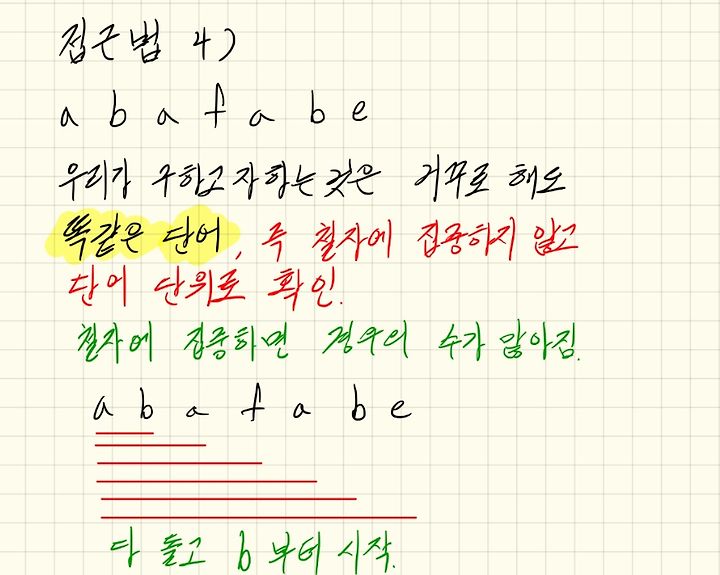 접근법 4)
a b a f a b e
우리가 구하고자하는것은 거꾸로 해도
똑같은 단어, 즉 철자에 집중하지 않고
단어 단위로 확인.
철자에 집중하면 경우의 수가 많아짐.
a b a f a b e
다 돌고 b 부터 시작.